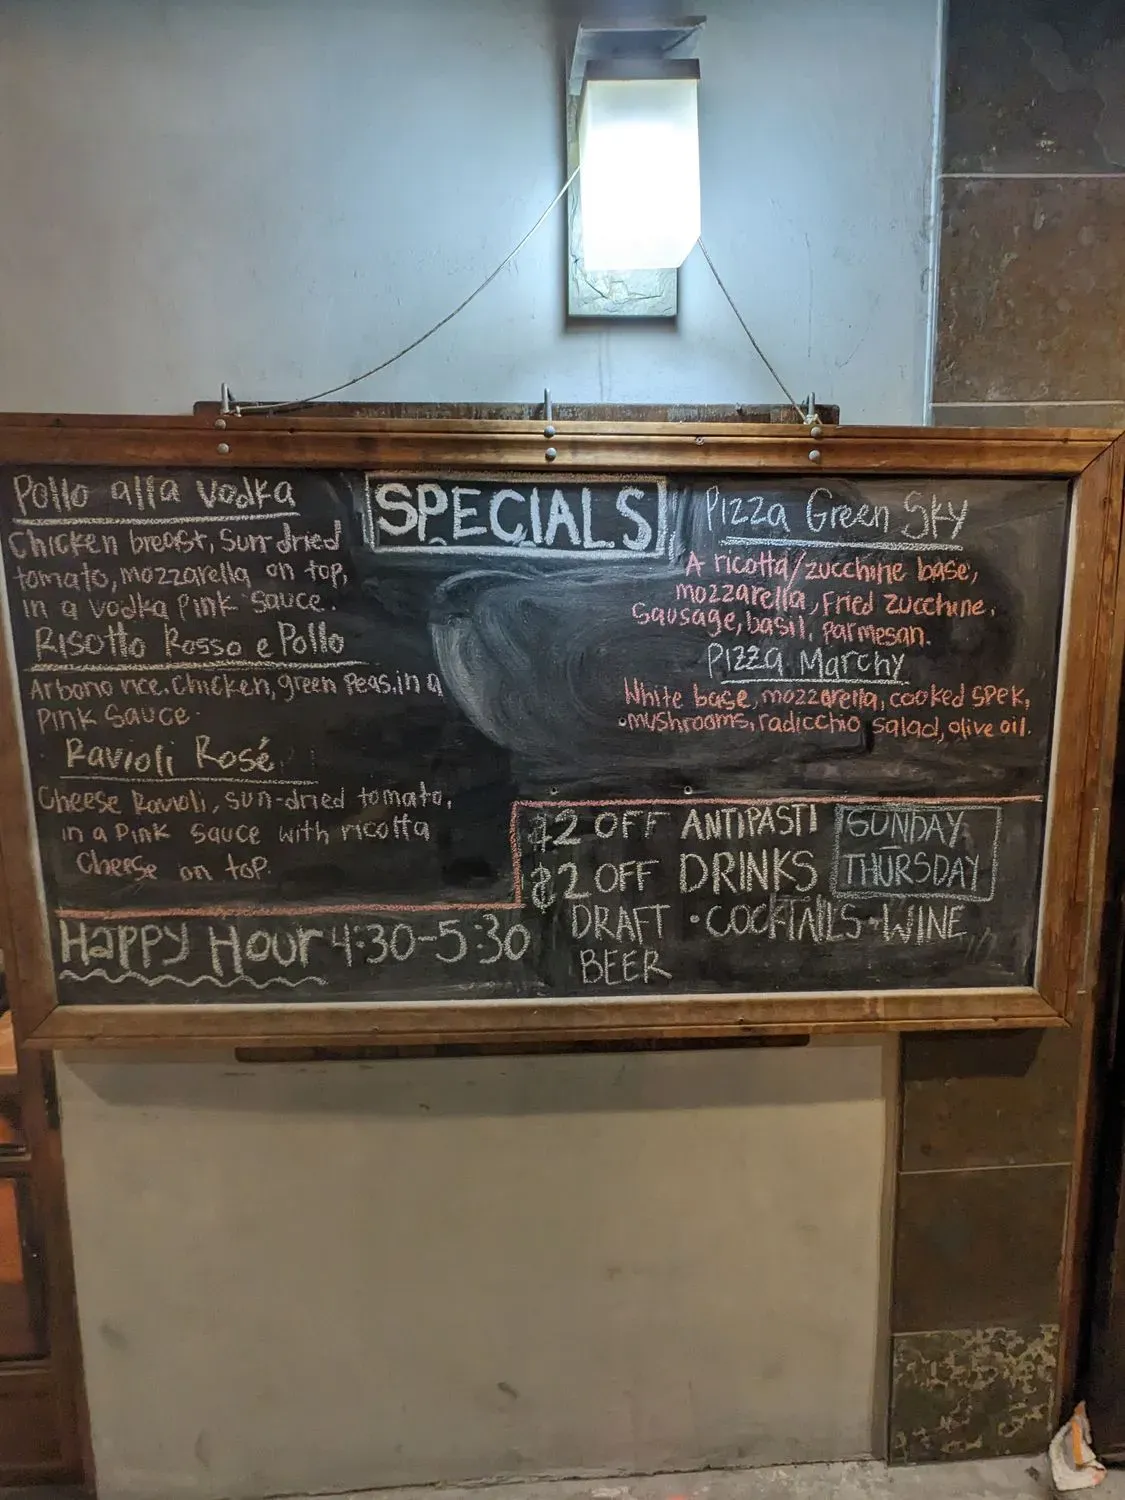 SPECIALS
Pollo alla Vodka
Chicken breast, Sun-dried
tomato, mozzarella on top,
in a vodka Pink Sauce.
Risotto Rosso e Pollo
Arborio rice. Chicken, green Peas, in a
Pink Sauce.
Ravioli Rosé
Cheese Ravioli, sun-dried tomato,
in a Pink Sauce with ricotta
Cheese on top.
Pizza Green Sky
A ricotta/zucchine base,
mozzarella, Fried zucchine.
Sausage, basil, parmesan.
Pizza Marchy
White base, mozzarella, cooked Spek,
mushrooms, radicchio salad, olive oil.
Happy Hour 4:30-5:30
$2 OFF ANTIPASTI
$2 OFF DRINKS
DRAFT • COCKTAILS • WINE
BEER
SUNDAY
–
THURSDAY